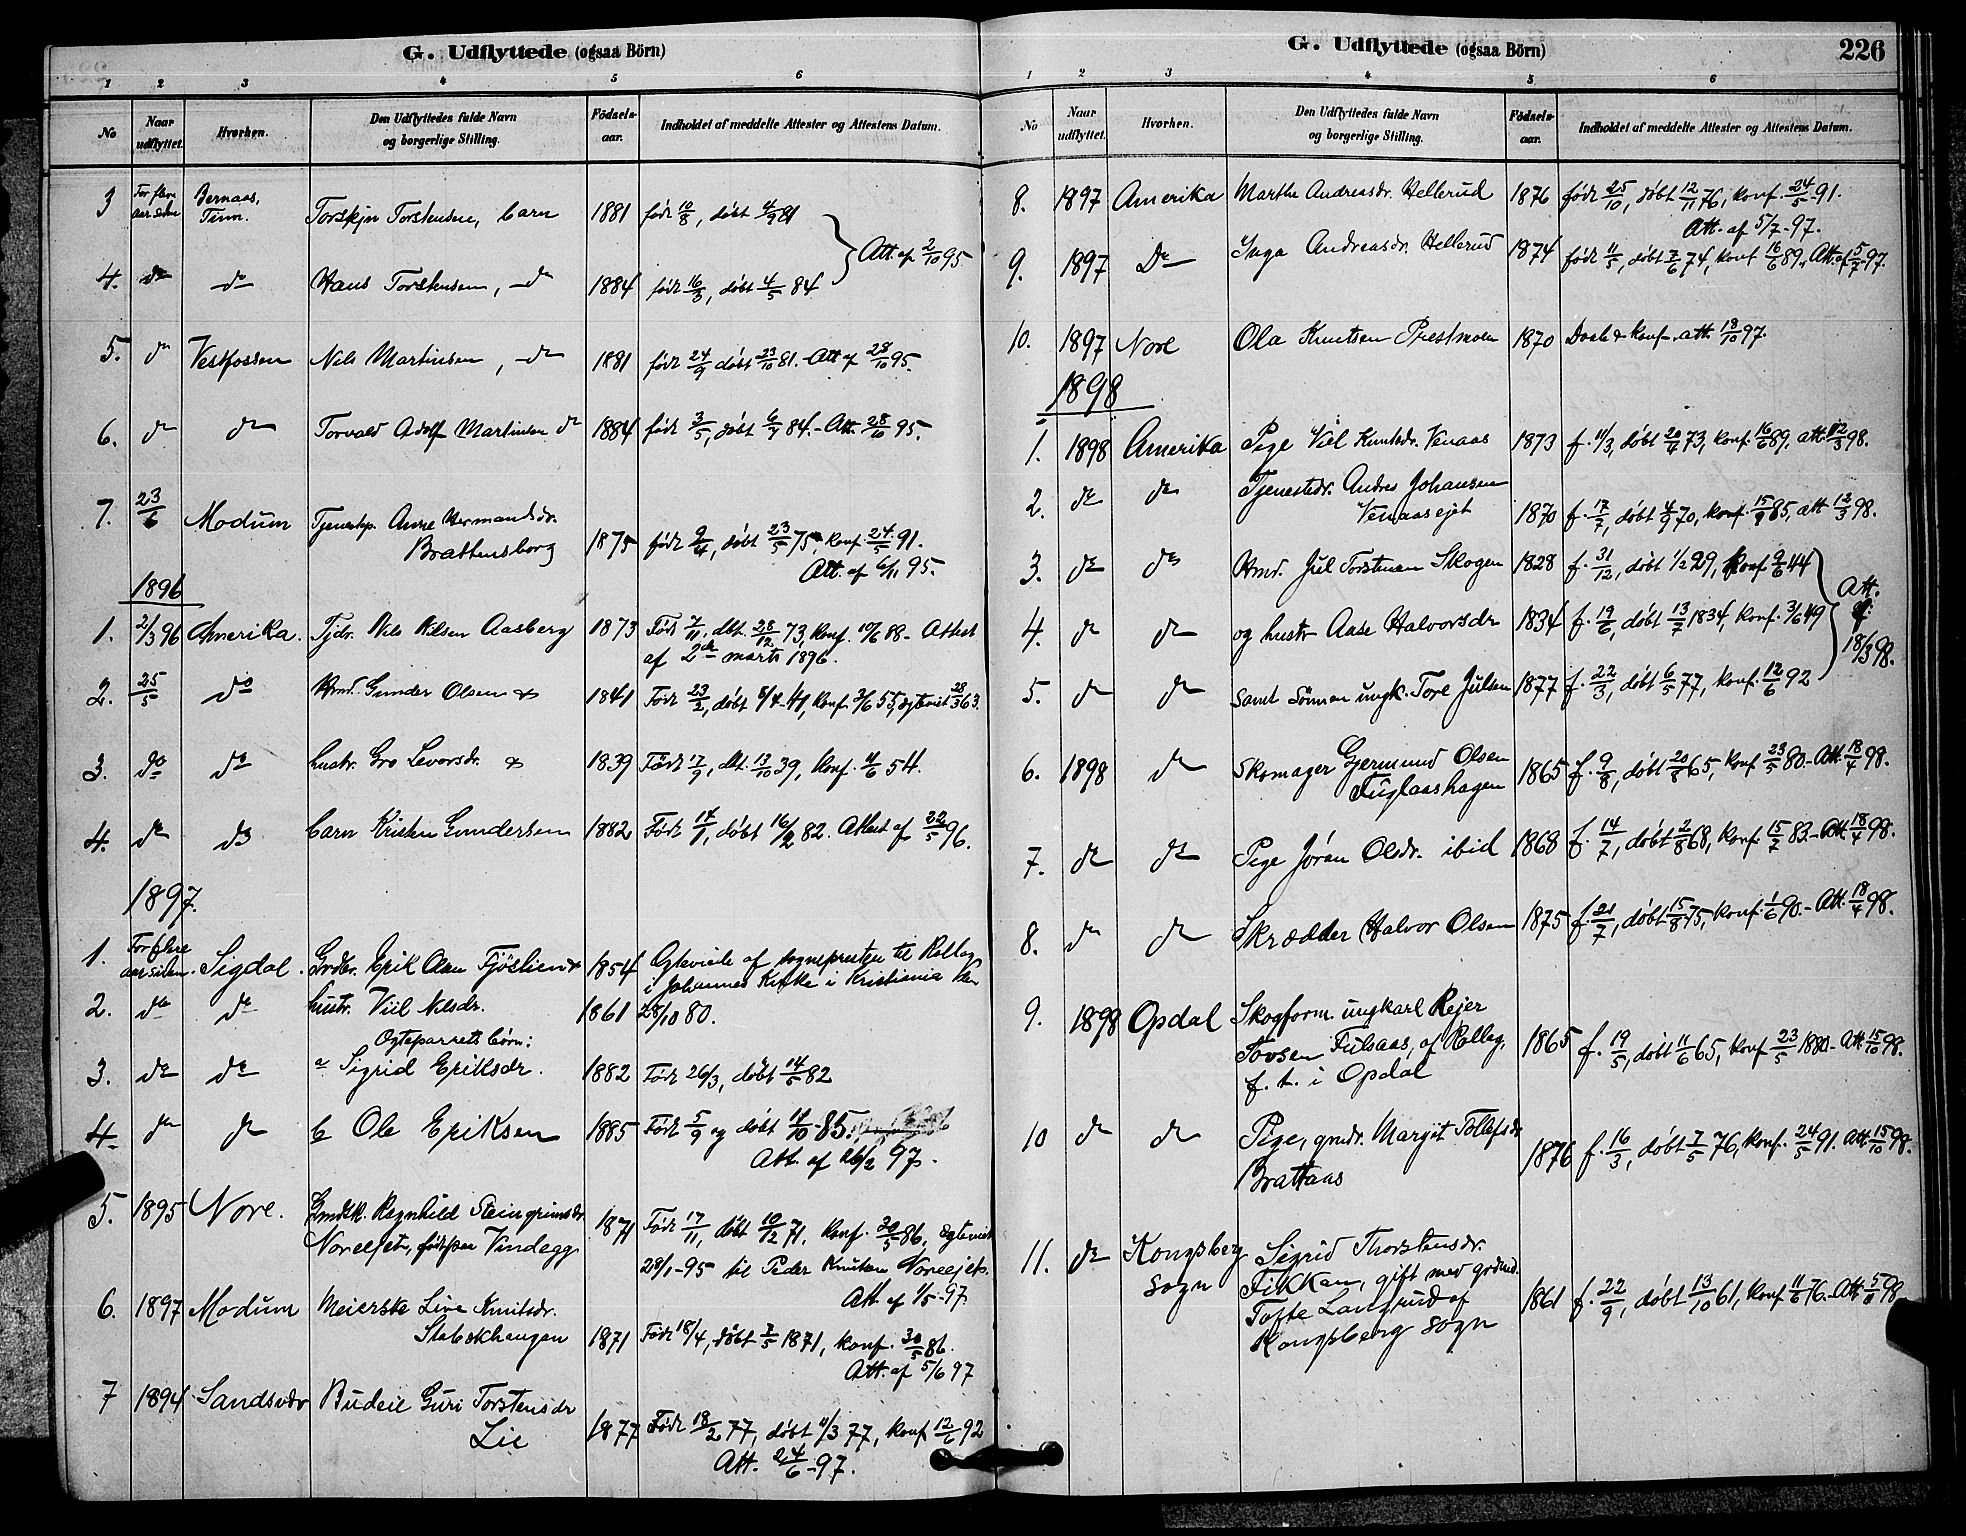 G. Udflyttede (ogsaa Börn)
1 2 3 4 5 6
No Naar udflyttet. Hvorhen. Den Udflyttedes fulde Navn og borgerlige Stilling. Födsels-aar. Indholdet af meddelte Attester og Attestens Datum.
3 For flere aar siden Bernaas, Tinn. Torstein Torstensen, barn 1881 født 10/8, døbt 4/9 81
Att. af 2/10 95
4. do do Hans Torstensen, do 1884 født 16/3, døbt 4/5 84
5. do Vestfossen Nils Martinsen, do 1881 født 24/9 døbt 23/10 81. Att af 28/10 95.
6. do do Torvald Adolf Martinsen do 1884 født 3/5, døbt 6/7 84. Att. 28/6 95.
7. 23/6 Modum Tjenestep. Anne Hermandsdr.
Brattensborg 1875 født 9/4, døbt 23/5 75, konf. 24/5 91.
Att. af 6/11 95.
1896
1. 2/3 96 Amerika. Tjdr. Nils Nilsen Aasberg 1873 Født 7/11, dbt. 28/12 73, konf. 10/6 88 - Attest
af 2den marts 1896.
2. 25/5 do Hmd. Gunder Olsen & 1841 Født 23/2, døbt 5/4 41, konf. 3/6 55, egteviet 28/3 63.
3. do do hustr. Gro Levorsdr. & 1839 Født 17/9, dbt. 13/10 39, konf. 11/6 54.
4. do do barn Kristen Gundersen 1882 Født 17/1, døbt 16/2 82. Attest af 22/5 96.
1897.
1. For flere aar siden. Sigdal. Grdbr. Erik Olsen Fjöslien & 1854 Egteviede af sognepresten til Rollag
i Johannes Kirke i Kristiania den
2. do do hustr. Viil Nilsdr. 1861 28/10 80.
Egteparrets börn:
3. do do a Sigrid Eriksdr. 1882 Født 26/3, døbt 14/5 82
4 do do b Ole Eriksen 1885 Født 5/9 og døbt 11/10 85.
Att. af 26/2 97.
5. 1895 Nore. Gmdsk. Ragnhild Steingrimsdr
Noreejet, født paa Vindegg 1871 Født 17/11, døbt 10/12 71, konf. 30/5 86, egteviet
28/1-95 til Peder Knutsen Noreejet.
Att. af 1/5-97
6. 1897 Modum Meierske Live Knutsdr.
Stabekhaugen 1871 Født 18/4, døbt 7/5 1871, konf. 30/5 86.
Att. af 5/6 97
7 1894 Sandsvær Budeie Guri Torstensdr
Lie 1877 Født 18/2 77, døbt 11/3 77, konf 12/6 92
Att. 24/6-97.
G. Udflyttede (ogsaa Börn) 226
1 2 3 4 5 6
No Naar udflyttet. Hvorhen. Den Udflyttedes fulde Navn og borgerlige Stilling. Födsels-aar. Indholdet af meddelte Attester og Attestens Datum.
8. 1897 Amerika Marthe Andreasdr. Hellerud 1876 født 25/10, døbt 12/11 76, konf. 24/5 91.
Att. af 5/7-97.
9. 1897 Do Inga Andreasdr. Hellerud 1874 født 11/5, døbt 7/6 74, konf 16/6 89, Att. af 5/7 97.
10. 1897 Nore Ola Knutsen Prestmoen 1870 Daab & konf. att. 18/10 97.
1898
1. 1898 Amerika Pige Viel Knutsdr. Venaas 1873 f. 11/3, døbt 20/4 73, konf. 16/6 89, att. 12/3 98.
2. do do Tjenestedr. Andres Johansen
Venaasejet 1870 f. 17/7, døbt 4/9 70, konf. 15/8 85, att 12/3 98.
3. do do Hmd. Jul Torstensen Skogen 1828 f. 31/12, døbt 1/2 29, konf 9/6 44
Att. af 18/3 98.
4. do do og hustr Aase Halvorsdr 1834 f. 19/6, døbt 13/7 1834, konf. 3/6 49
5. do do samt sönnen ungk. Tore Julsen 1877 f. 22/3, døbt 6/5 77, konf. 12/6 92
6. 1898 do Skomager Gjermund Olsen
Fuglaashagen 1865 f. 9/8, døbt 20/8 65, konf 23/5 80 - Att. 18/4 98.
7. do do Pige Jöran Olsdr. ibid 1868 f. 14/7, døbt 2/8 68, konf. 15/7 83 - Att. 18/4 98.
8. do do Skrædder Halvor Olsen 1875 f. 21/7, døbt 15/8 75, konf. 1/6 90. - Att. 18/4 98.
9. 1898 Opdal Skogform. ungkarl Rejer
Tovsen Fulsaas, af Rollag,
f. t. i Opdal 1865 f. 19/5, døbt 11/6 65, konf 23/5 1880 - Att 15/10 98.
10 do do Pige, gmdr. Margit Tollefsdr
Brattaas 1876 f. 16/3, døbt 7/5 76, konf. 24/5 91. Att 15/10 98.
11. do Kongsberg sogn Sigrid Thorstensdr.
Fikkan, gift med grdmd.
Tofte Langrud af
Kongsberg sogn 1861 f. 22/9, døbt 13/10 61, konf 11/6 76 - Att. 5/11 98